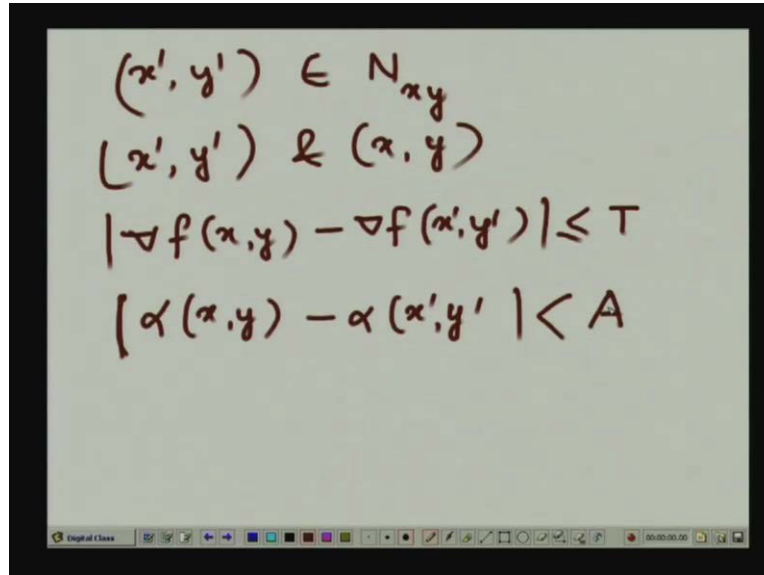 (x', y') ∈ N_xy
(x', y') & (x, y)
|∇f(x,y) − ∇f(x',y')| ≤ T
|α(x,y) − α(x',y' | < A
Digital Class
00:00:00.00